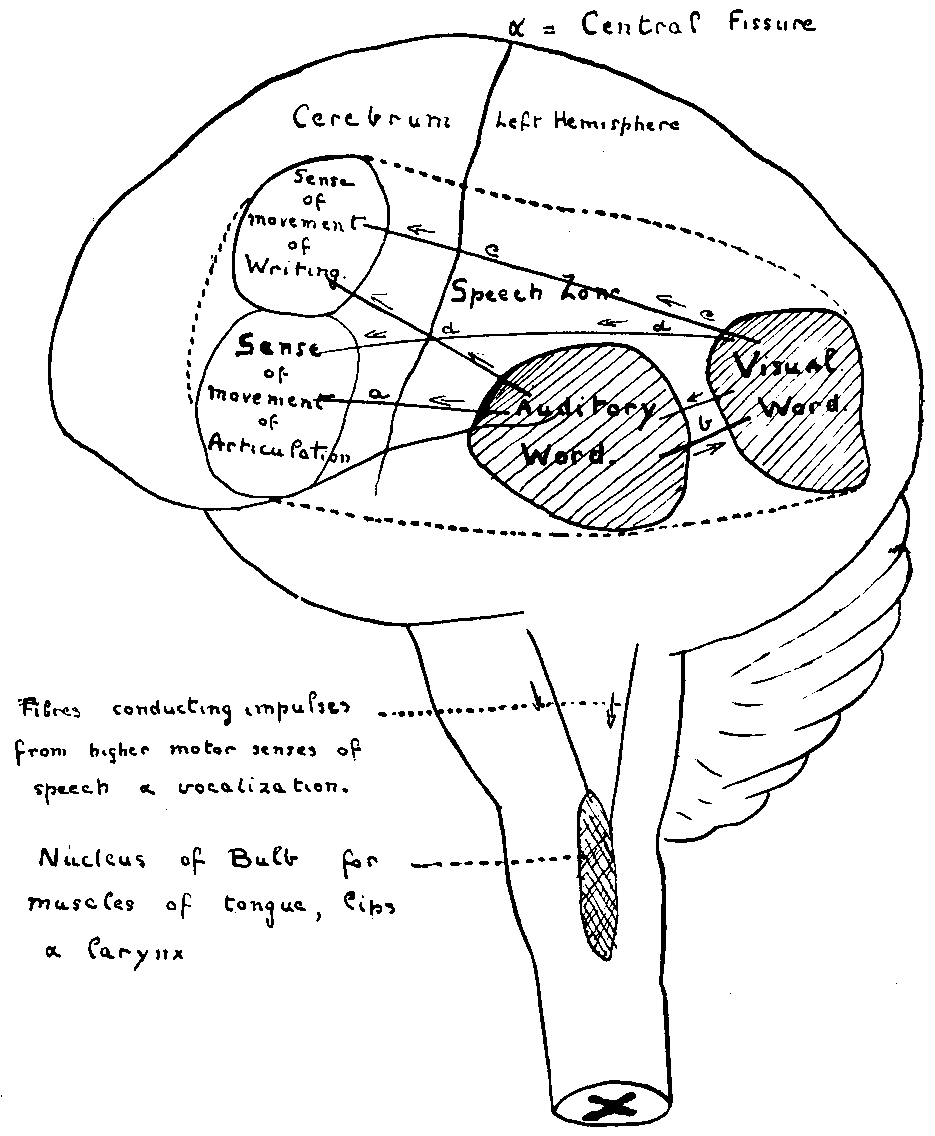 α = Central Fissure
Cerebrum Left Hemisphere
Sense
of
movement
of
Writing.
c
Speech Zone
c
d
d
Sense
of
movement
of
Articulation
a
Auditory
Word.
b
Visual
Word.
Fibres conducting impulses
from higher motor senses of
speech & vocalization.
Nucleus of Bulb for
muscles of tongue, lips
& larynx